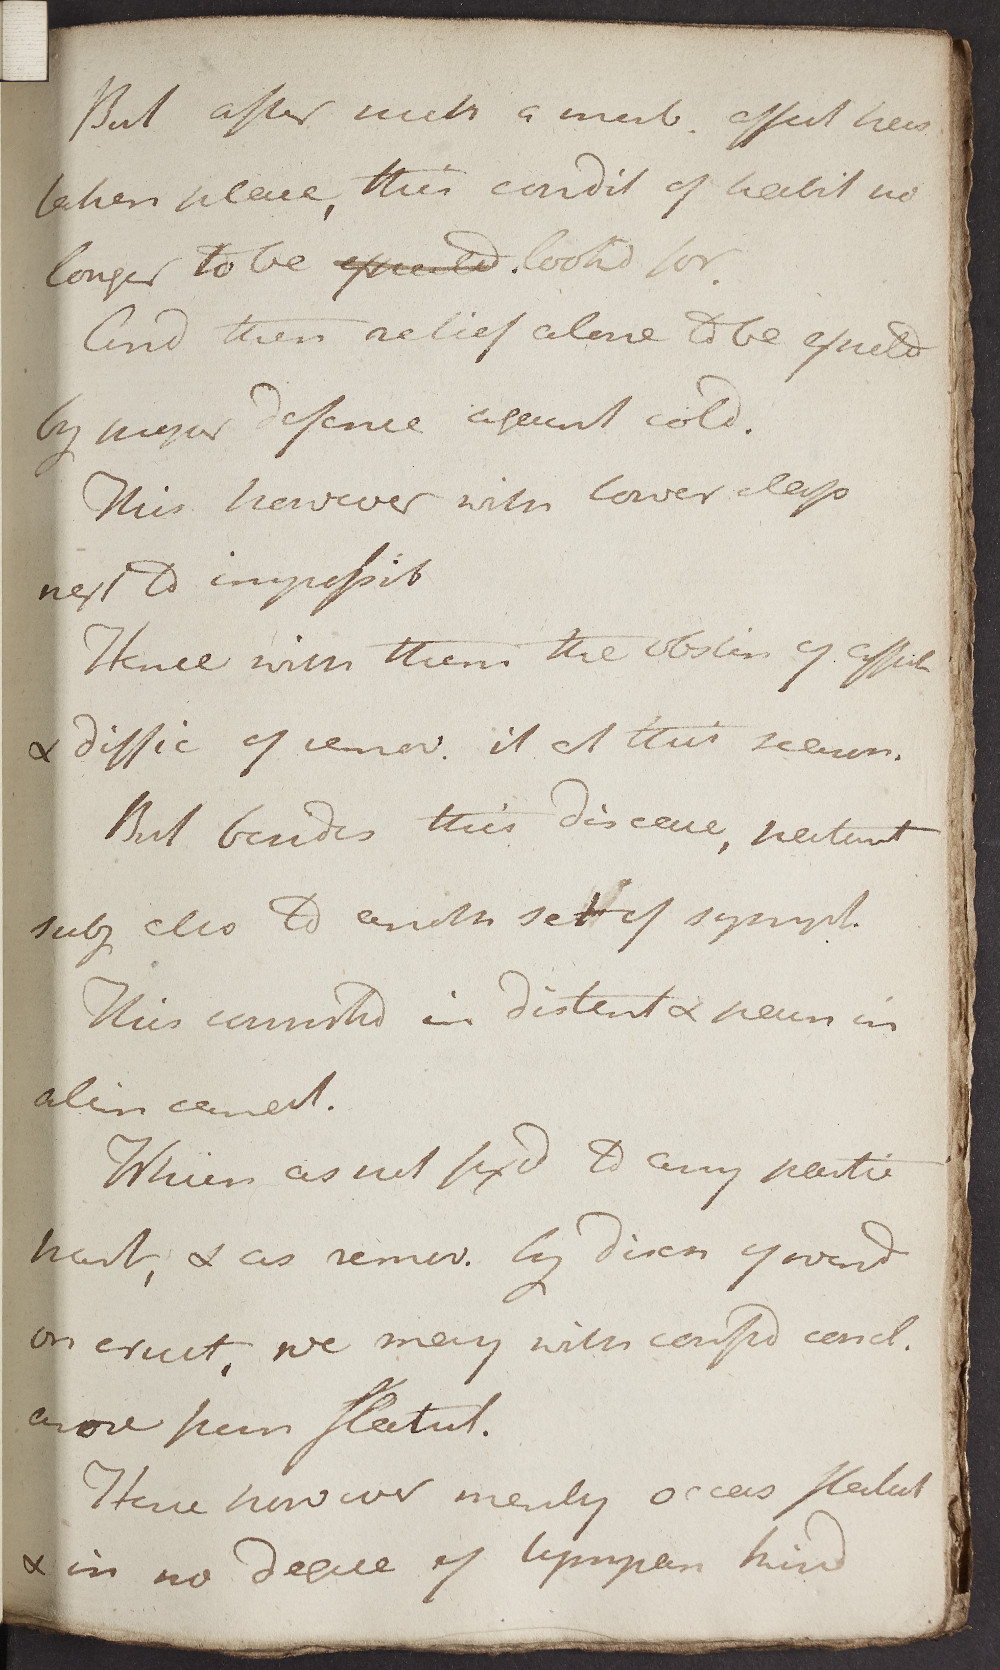 But after such a morb. affect has
taken place, this condit of habit no
longer to be expected. look'd for.
And then relief alone to be expectd
by proper defence against cold.
This however with lower class
next to impossib
Hence with them the obstin of affect
& diffic of remov. it at this season.
But besides this disease, patient
subj also to anoth set of sympt.
This consistd in distent & pain in
alim canal.
Which as not fixd to any partic
part, & as remov. by disch of wind
or eruct, we may with confid concl.
arose from flatul.
Here however merely occas flatul
& in no degree of tympan kind